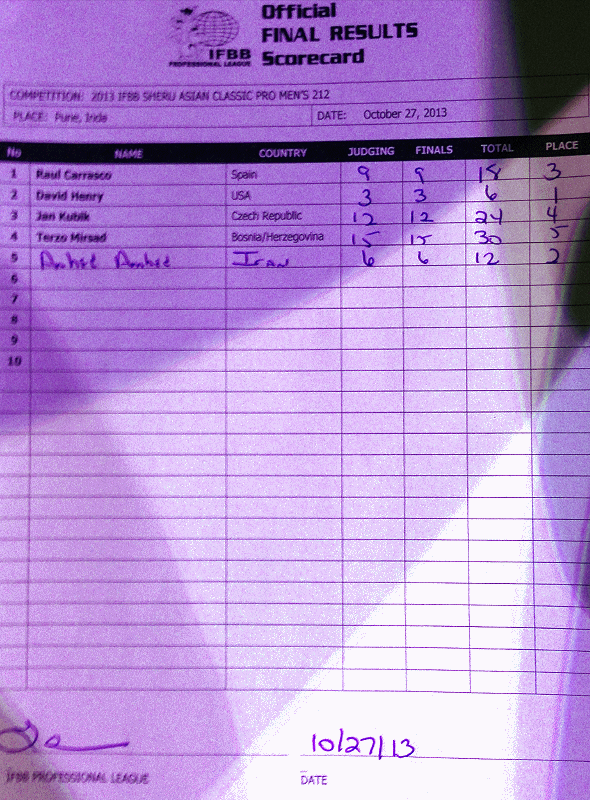 Official
FINAL RESULTS
Scorecard
IFBB
PROFESSIONAL LEAGUE
COMPETITION: 2013 IFBB SHERU ASIAN CLASSIC PRO MEN'S 212
PLACE: Pune, India DATE: October 27, 2013
No NAME COUNTRY JUDGING FINALS TOTAL PLACE
1 Raul Carrasco Spain 9 9 18 3
2 David Henry USA 3 3 6 1
3 Jan Kubik Czech Republic 12 12 24 4
4 Terzo Mirsad Bosnia/Herzegovina 15 15 30 5
5 Iran 6 6 12 2
6
7
8
9
10
10/27/13
IFBB PROFESSIONAL LEAGUE DATE